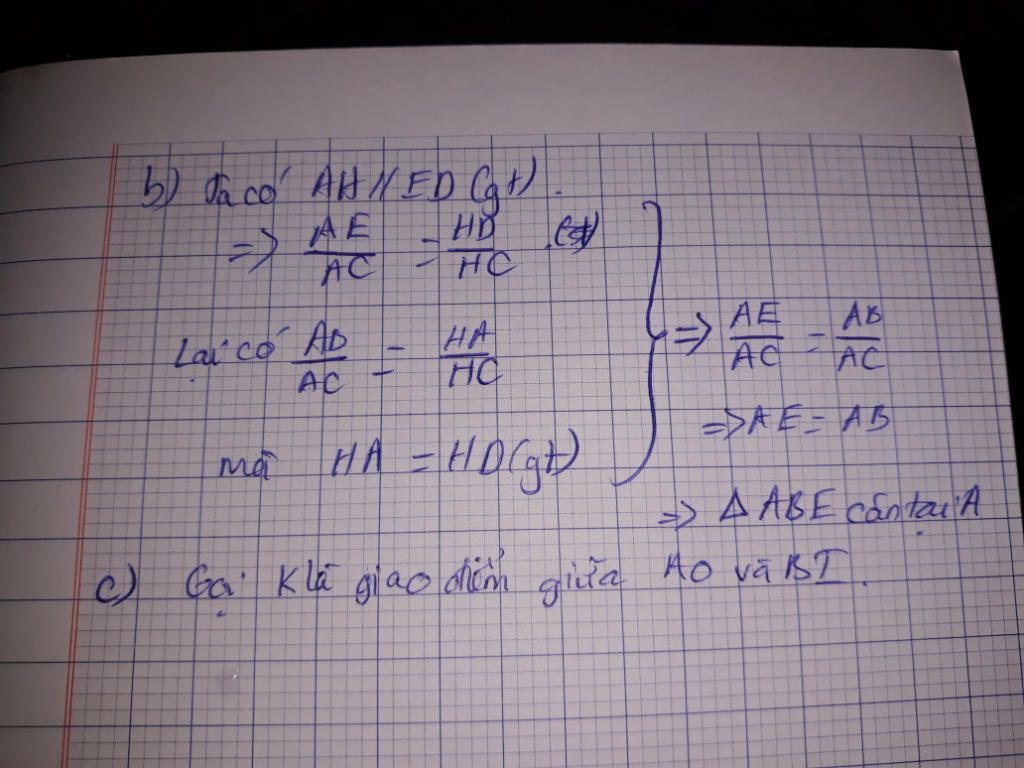 b) Ta có AH // ED (gt).
=> AE/AC = HD/HC
Lại có AB/AC = HA/HC
mà HA = HD (gt)
=> AE/AC = AB/AC
=> AE = AB
=> Δ ABE cân tại A
c) Gọi K là giao điểm giữa AO và BI.